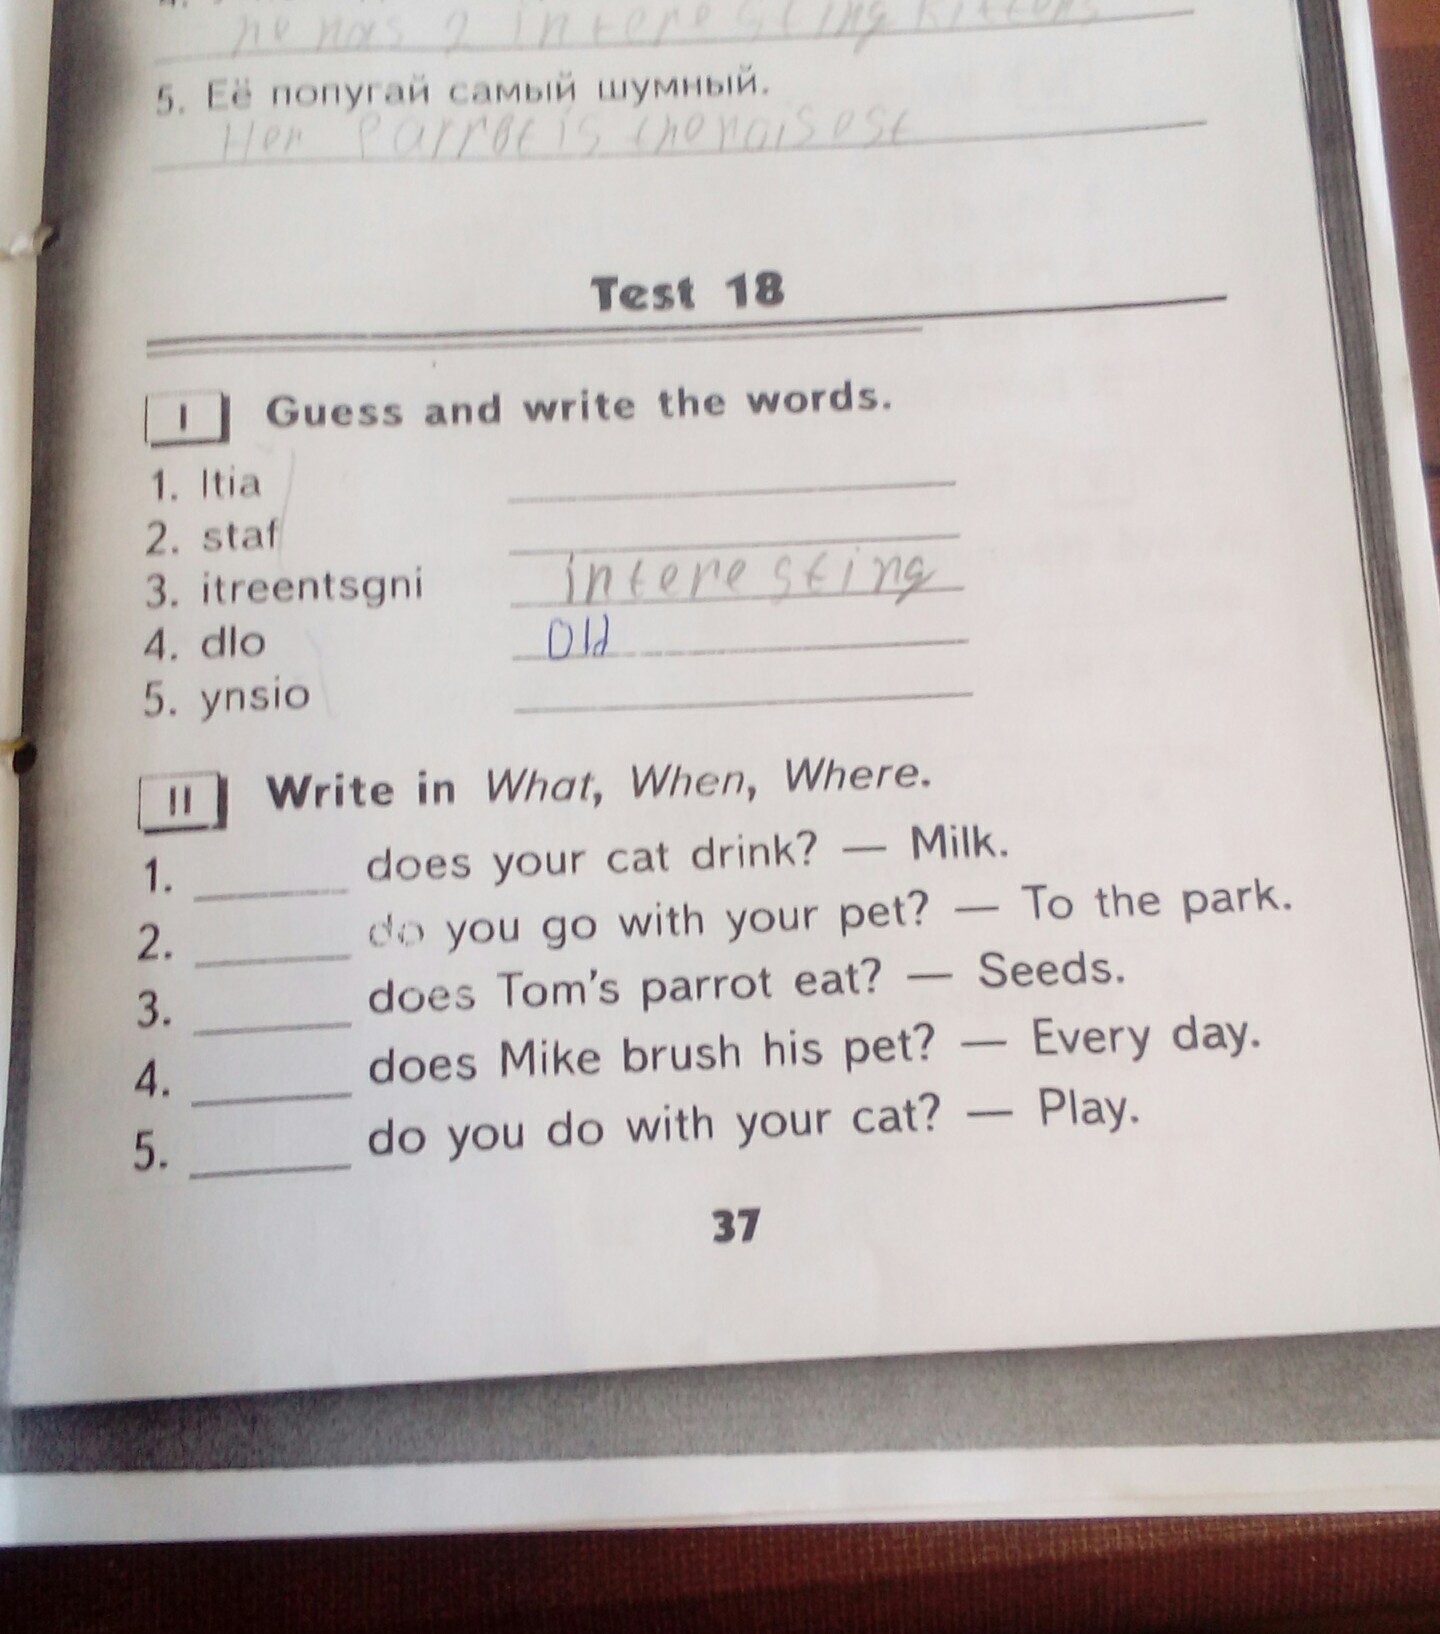 he has 2 interesting kittens
5. Её попугай самый шумный.
Her parrot is the noisest
Test 18
I Guess and write the words.
1. ltia
2. staf
3. itreentsgni interesting
4. dlo Old
5. ynsio
II Write in What, When, Where.
1. ______ does your cat drink? — Milk.
2. ______ do you go with your pet? — To the park.
3. ______ does Tom's parrot eat? — Seeds.
4. ______ does Mike brush his pet? — Every day.
5. ______ do you do with your cat? — Play.
37